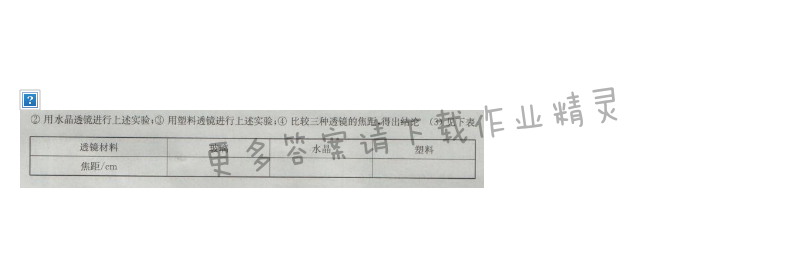 ?
② 用水晶透镜进行上述实验;③ 用塑料透镜进行上述实验;④ 比较三种透镜的焦距,得出结论 (3) 见下表
透镜材料 玻璃 水晶 塑料
焦距/cm
更多答案请下载作业精灵